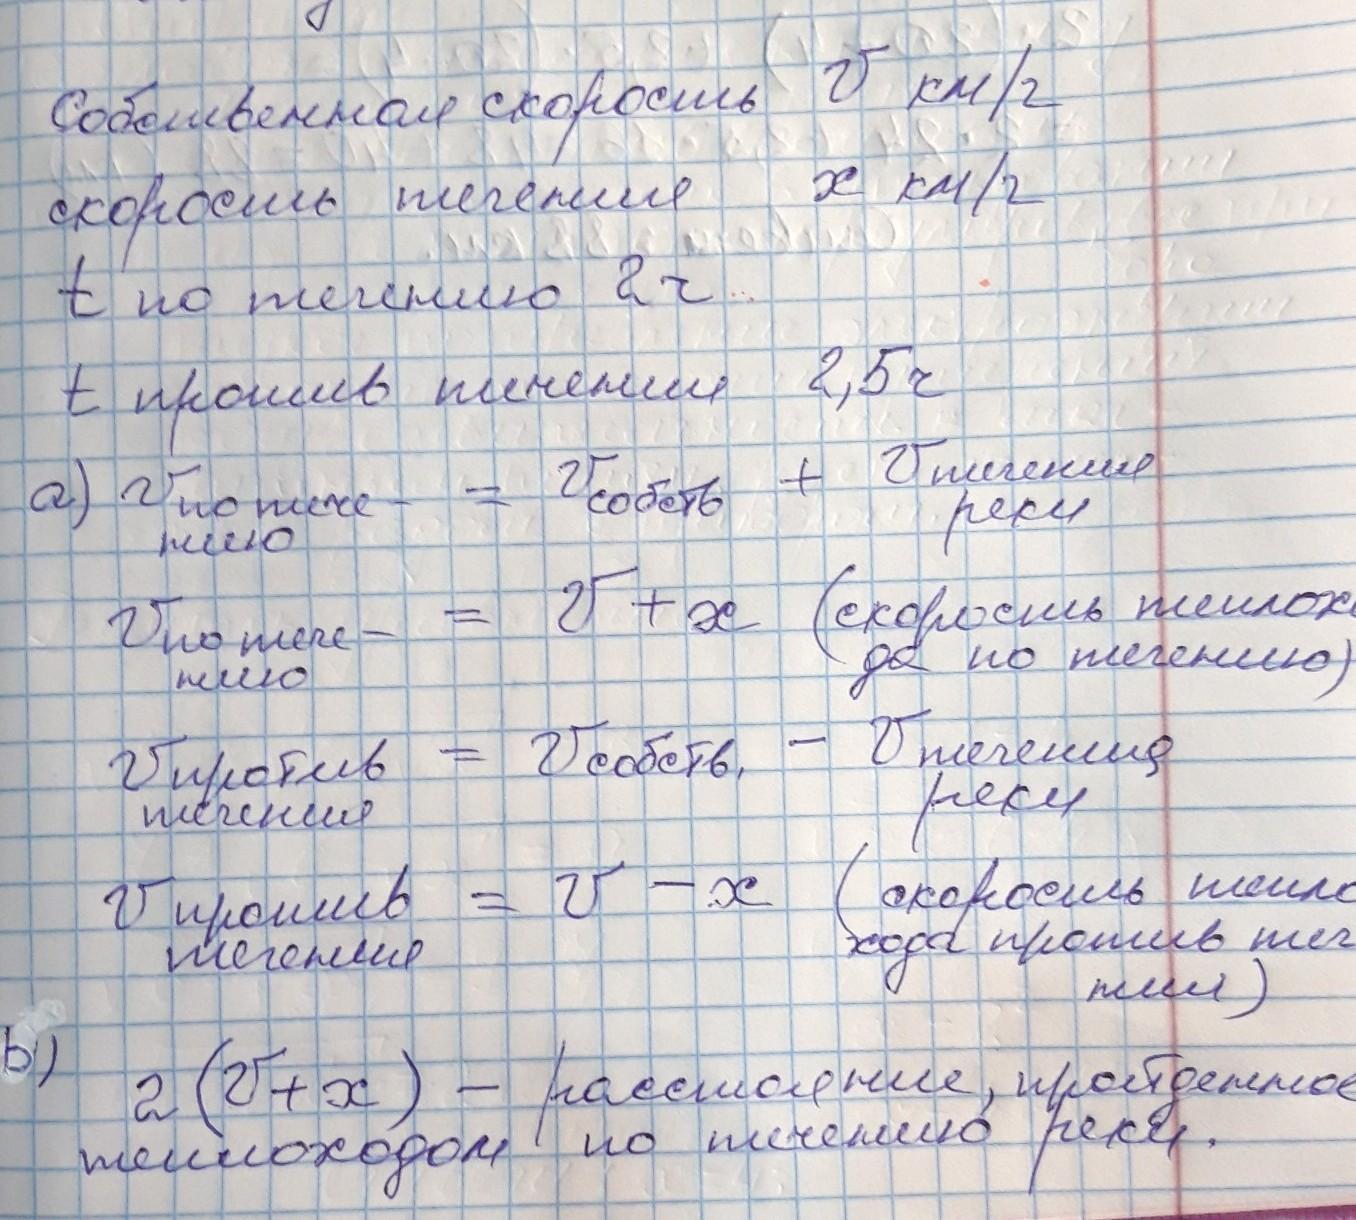 Собственная скорость v км/ч
скорость течения x км/ч
t по течению 2 ч
t против течения 2,5 ч
а) v по тече- = v собств + v течения
нию реки
v по тече- = v + x (скорость теплохо
нию да по течению)
v против = v собств. - v течения
течения реки
v против = v - x (скорость тепло
течения хода против теч
нии)
b)
2(v+x) - расстояние, пройденное
теплоходом по течению реки.